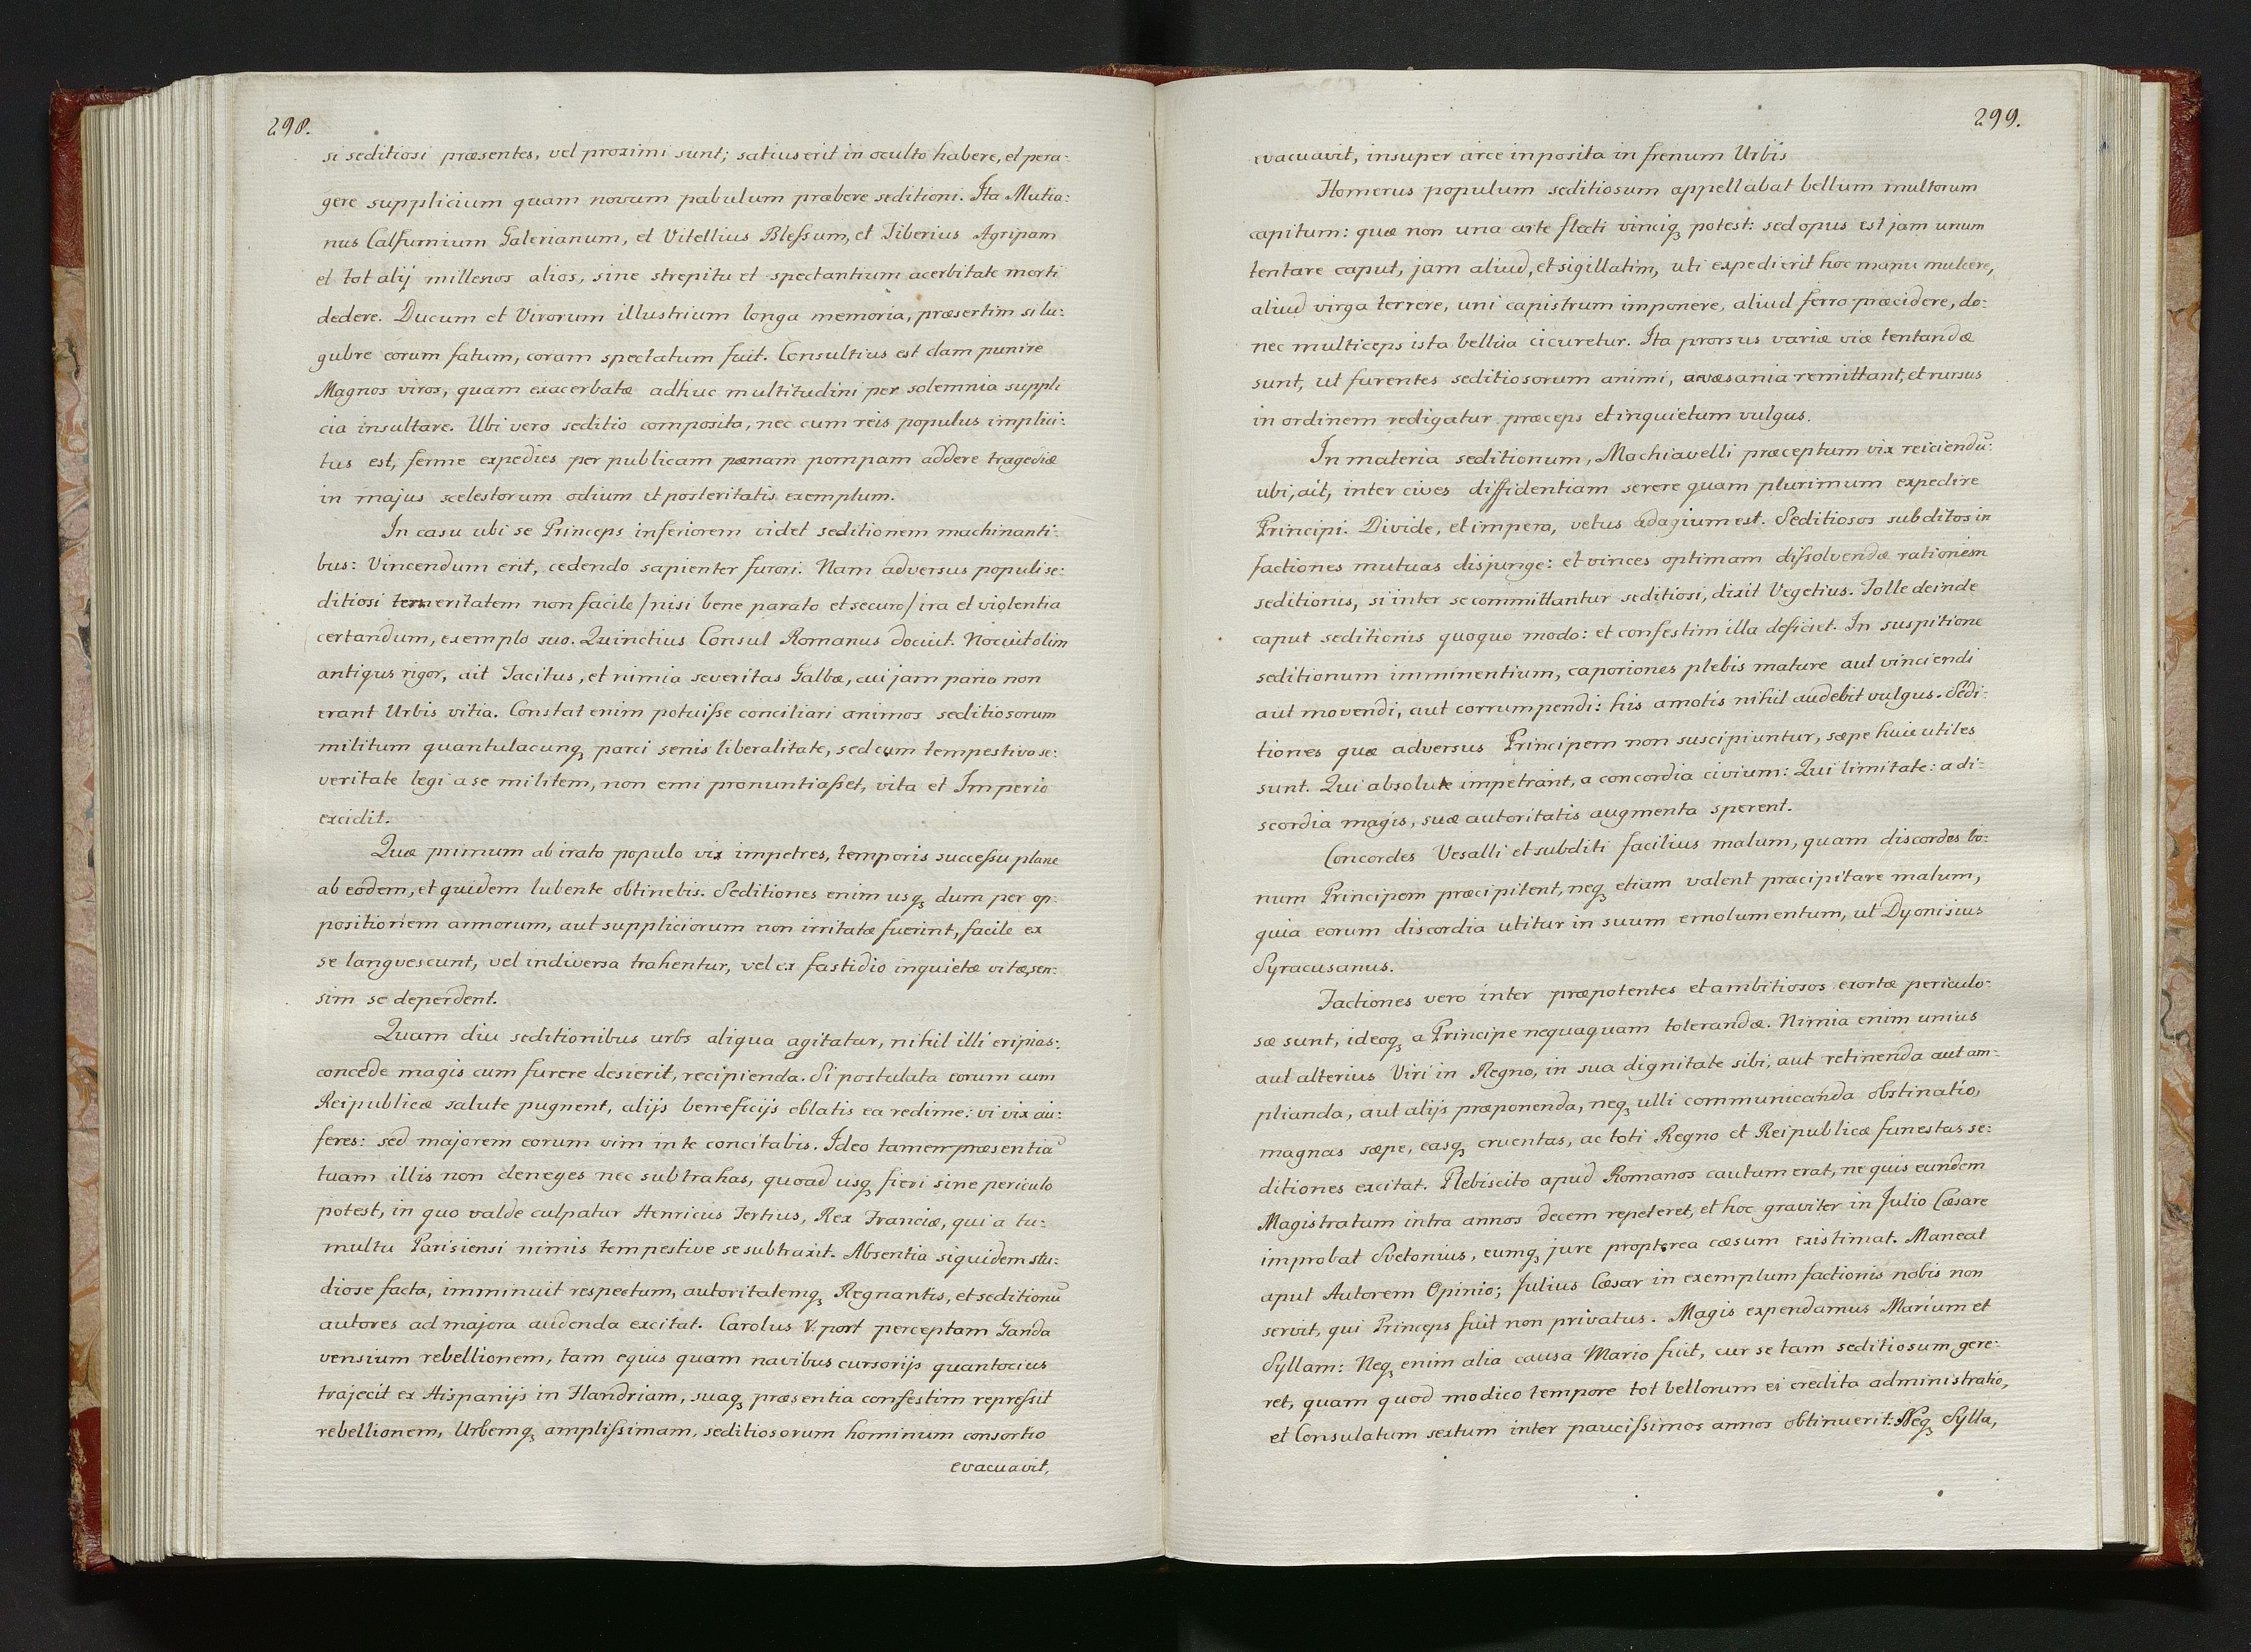 298.
si seditiosi præsentes, vel proximi sunt; satius erit in oculto habere, et pera:
gere supplicium quam novum pabulum præbere seditioni. Ita Mutia:
nus Calfurnium Galerianum, et Vitellius Blessum, et Tiberius Agripam
et tot alij millenos alios, sine strepitu et spectantium acerbitate morti
dedere. Ducum et Virorum illustrium longa memoria, præsertim si lu:
gubre eorum fatum, coram spectatum fuit. Consultius est clam punire
Magnos viros, quam exacerbatæ adhuc multitudini per solemnia suppli
cia insultare. Ubi vero seditio composita, nec cum reis populus implici:
tus est, ferme expedies per publicam pœnam pompam addere tragediæ
in majus scelestorum odium et posteritatis exemplum.
In casu ubi se Princeps inferiorem videt seditionem machinanti:
bus: Vincendum erit, cedendo sapienter furori. Nam adversus populi se:
ditiosi temeritatem non facile /nisi bene parato et securo/ ira et violentia
certandum, exemplo suo. Quinctius Consul Romanus docuit. Nocuit olim
antiqus rigor, ait Tacitus, et nimia severitas Galbæ, cui jam pario non
erant Urbis vitia. Constat enim potuisse conciliari animos seditiosorum
militum quantulacunq₃ parci senis liberalitate, sed cum tempestivo se:
veritate legi a se militem, non emi pronuntiasset, vita et Imperio
excidit.
Quæ primum ab irato populo vix impetres, temporis successu plane
ab eodem, et quidem lubente obtinebis. Seditiones enim usq₃ dum per op:
positionem armorum, aut suppliciorum non irritatæ fuerint, facile ex
se langvescunt, vel indiversa trahentur, vel ex fastidio inquietæ vitæ, sen:
sim se deperdent.
Quam diu seditionibus urbs aliqua agitatur, nihil illi eripias:
concede magis cum furere desierit, recipienda. Si postulata eorum cum
Reipublicæ salute pugnent, alijs beneficijs oblatis ea redime: vi vix au:
feres: sed majorem eorum vim in te concitabis. Ideo tamen præsentiā
tuam illis non deneges nec subtrahas, quoad usq₃ fieri sine periculo
potest, in quo valde culpatur Henricus Tertius, Rex Franciæ, qui a tu:
multu Parisiensi nimis tempestive se subtraxit. Absentia siquidem stu:
diose facta, imminuit respectum, autoritatemq₃ Regnantis, et seditionū
autores ad majora audenda excitat. Carolus V. post perceptam Ganda
vensium rebellionem, tam equis quam navibus cursorijs quantocius
trajecit ex Hispanijs in Flandriam, suaq₃ præsentia confestim repressit
rebellionem, Urbemq₃ amplissimam, seditiosorum hominum consortio
evacuavit,
299.
evacuavit, insuper arce inposita in frenum Urbis
Homerus populum seditiosum appellabat bellum multorum
capitum: quæ non una arte flecti vinciq₃ potest: sed opus est jam unum
tentare caput, jam aliud, et sigillatim, uti expedierit hoc manu mulcere,
aliud virga terrere, uni capistrum imponere, aliud ferro præcidere, do:
nec multiceps ista bellua cicuretur. Ita prorsus variæ viæ tentandæ
sunt, ut furentes seditiosorum animi, a væsania remittant, et rursus
in ordinem redigatur præceps et inquietum vulgus.
In materia seditionum, Machiavelli præceptum vix reiciendū:
ubi, ait, inter cives diffidentiam serere quam plurimum expedire
Principi. Divide, et impera, vetus adagium est. Seditiosos subditos in
factiones mutuas disjunge: et vinces optimam dissolvendæ rationem
seditionis, si inter se committantur seditiosi, dixit Vegetius. Tolle deinde
caput seditionis quoquo modo: et confestim illa deficiet. In suspitione
seditionum imminentium, caporiones plebis mature aut vinciendi
aut movendi, aut corrumpendi: his amotis nihil audebit vulgus. Sedi:
tiones quæ adversus Principem non suscipiuntur, sæpe huic utiles
sunt. Qui absolute impetrant, a concordia civium: Qui limitate: a di:
scordia magis, suæ autoritatis augmenta sperent.
Concordes Vesalli et subditi facilius malum, quam discordes bo:
num Principem præcipitent, neq₃ etiam valent præcipitare malum,
quia eorum discordia utitur in suum emolumentum, ut Dyonisius
Syracusanus.
Factiones vero inter præpotentes et ambitiosos exortæ periculo:
sæ sunt, ideoq₃ a Principe nequaquam tolerandæ. Nimia enim unius
aut alterius Viri in Regno, in sua dignitate sibi, aut retinenda aut am:
plianda, aut alijs præponenda, neq₃ ulli communicanda obstinatio,
magnas sæpe, easq₃ cruentas, ac toti Regno et Reipublicæ funestas se:
ditiones excitat. Plebiscito apud Romanos cautum erat, ne quis eundem
Magistratum intra annos decem repeteret, et hoc graviter in Julio Cæsare
improbat Svetonius, eumq₃ jure propterea cæsum existimat. Maneat
aput Autorem Opinio; Julius Cæsar in exemplum factionis nobis non
servit, qui Princeps fuit non privatus. Magis expendamus Marium et
Syllam: Neq₃ enim alia causa Mario fuit, cur se tam seditiosum gere:
ret, quam quod modico tempore tot bellorum ei credita administratio,
et Consulatum sextum inter paucissimos annos obtinuerit: Neq₃ Sylla,